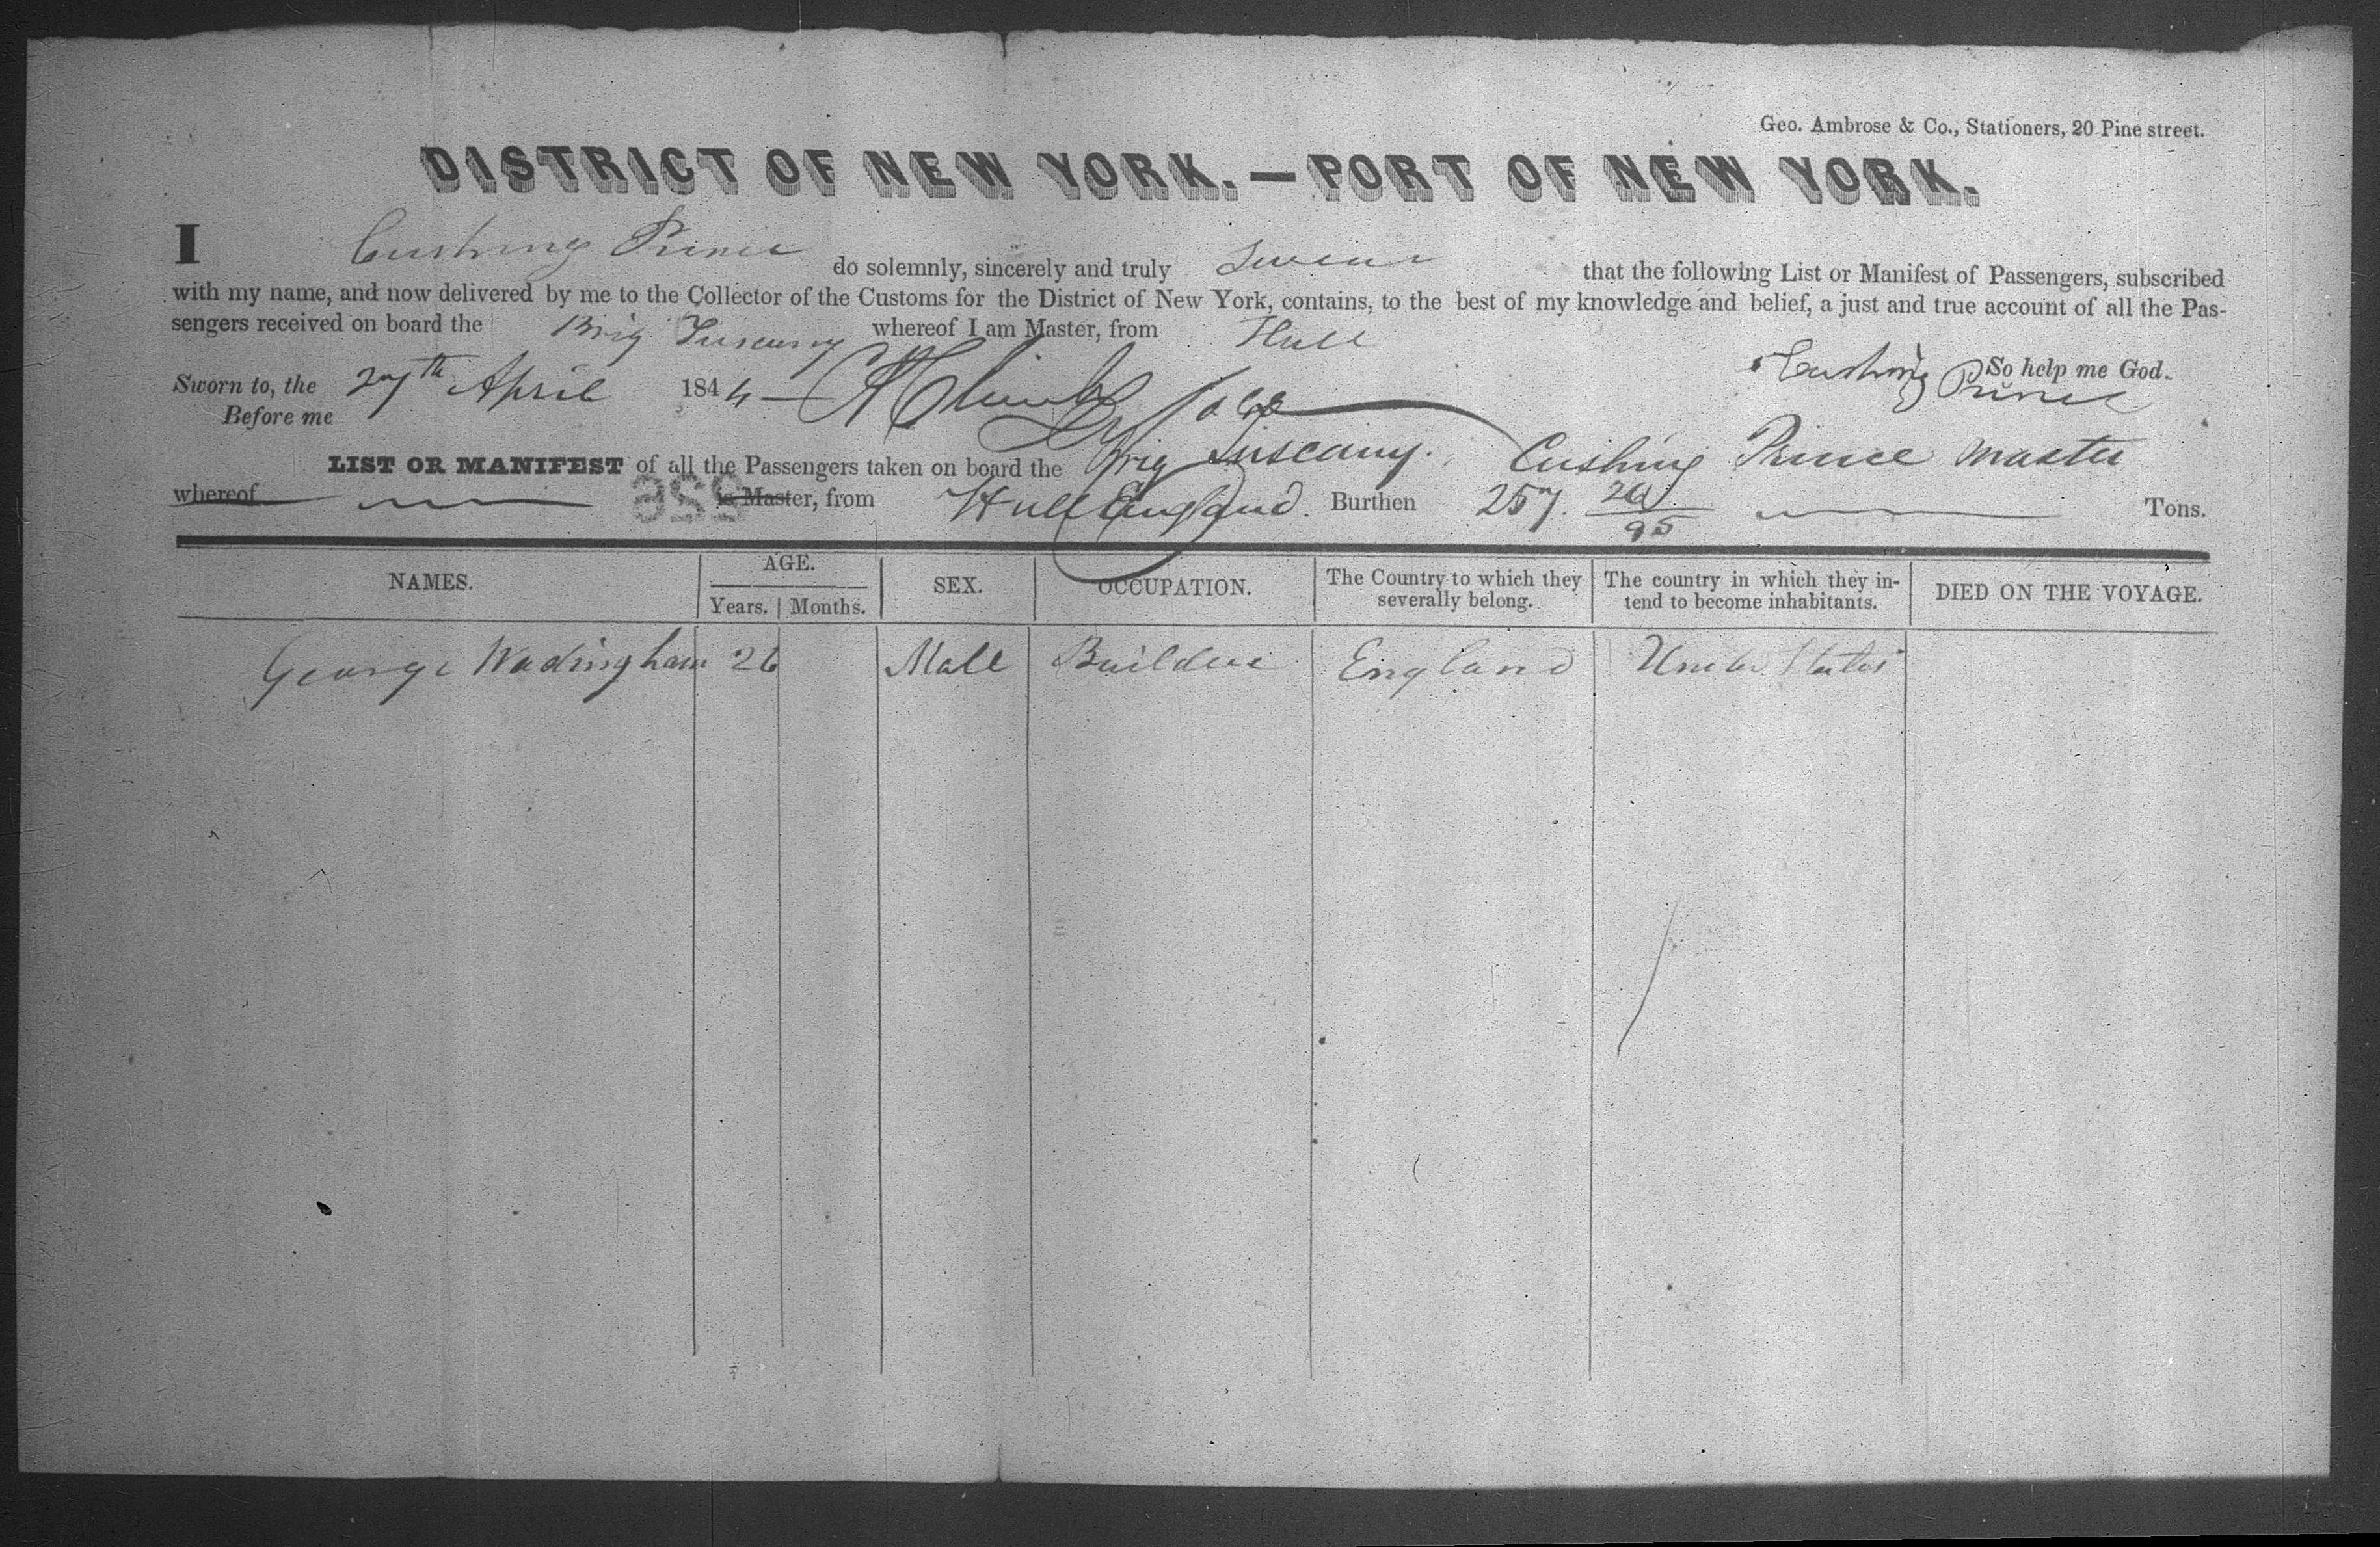 Geo. Ambrose & Co., Stationers, 20 Pine street.
DISTRICT OF NEW YORK.—PORT OF NEW YORK.
I Cushing Prince do solemnly, sincerely and truly Swear that the following List or Manifest of Passengers, subscribed
with my name, and now delivered by me to the Collector of the Customs for the District of New York, contains, to the best of my knowledge and belief, a just and true account of all the Pas-
sengers received on board the Brig Tuscany whereof I am Master, from Hull
So help me God.
Sworn to, the 27th April 1844 Cushing Prince
Before me
LIST OR MANIFEST of all the Passengers taken on board the Brig Tuscany. Cushing Prince master
whereof is Master, from Hull England. Burthen 257. 95 Tons.
NAMES. AGE. SEX. OCCUPATION. The Country to which they severally belong. The country in which they in-tend to become inhabitants. DIED ON THE VOYAGE.
Years. Months.
George Wadingham 26 Male Builder England United States